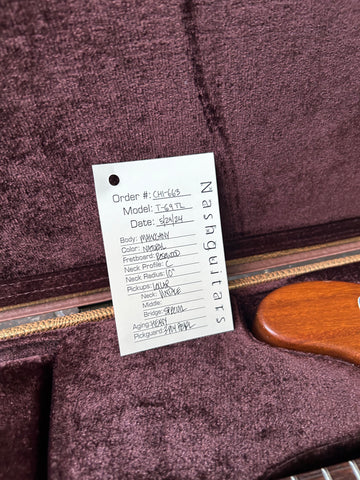 Nashguitars
Order #: CHI-663
Model: T-69 TL
Date: 5/24/24
Body: MAHOGANY
Color: NATURAL
Fretboard: ROSEWOOD
Neck Profile: C
Neck Radius: 10"
Pickups: LOLLAR
Neck:
Middle:
Bridge: SPECIAL
Aging: HEAVY
Pickguard: